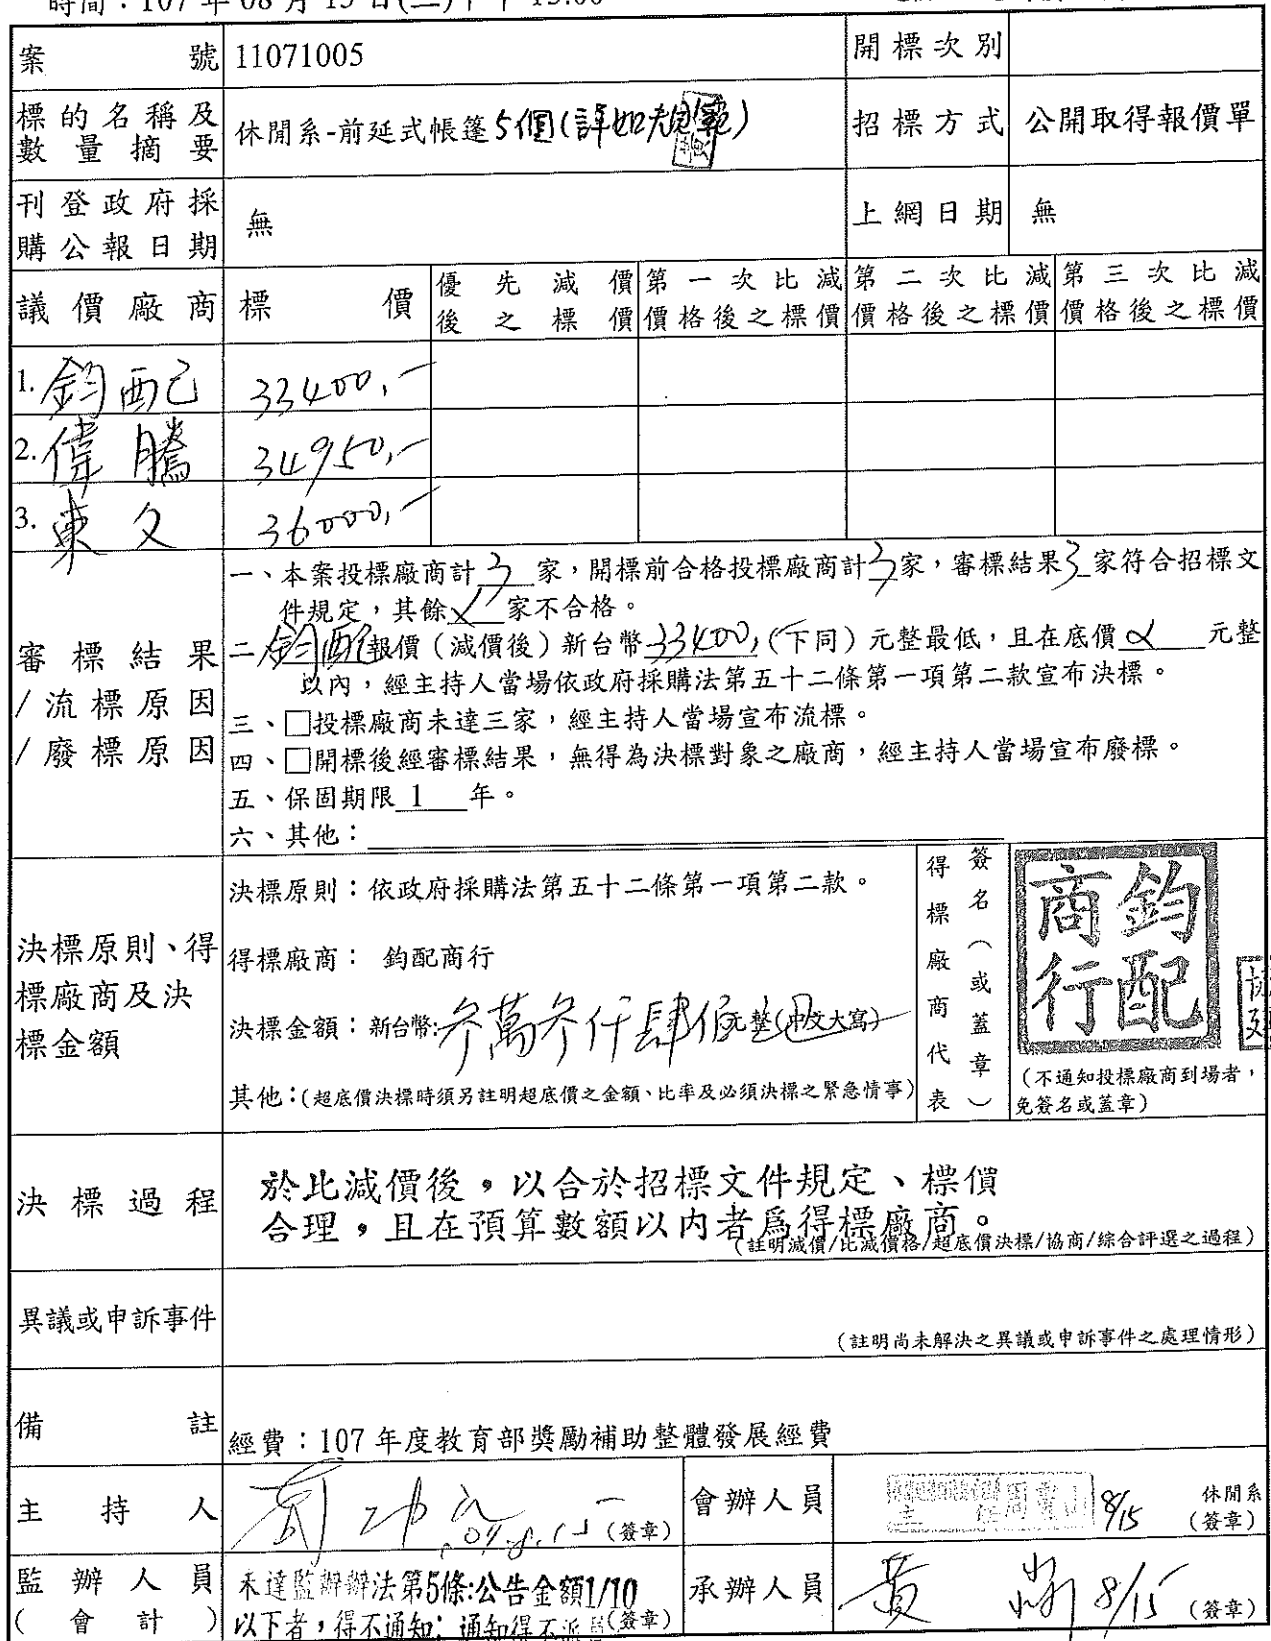 時間：107 年 08 月 15 日(三)下午 15:00
案號 11071005 開標次別
標的名稱及數量摘要 休閒系-前延式帳篷5個(詳如規範) 招標方式 公開取得報價單
刊登政府採購公報日期 無 上網日期 無
議價廠商 標價 優先減價後之標價 第一次比減價格後之標價 第二次比減價格後之標價 第三次比減價格後之標價
1. 鈞配 33400,-
2. 偉騰 34950,-
3. 東久 36000,-
審標結果/流標原因/廢標原因
一、本案投標廠商計 3 家，開標前合格投標廠商計3家，審標結果3家符合招標文
件規定，其餘 家不合格。
二鈞配報價（減價後）新台幣33400,(下同）元整最低，且在底價 元整
以內，經主持人當場依政府採購法第五十二條第一項第二款宣布決標。
三、□投標廠商未達三家，經主持人當場宣布流標。
四、□開標後經審標結果，無得為決標對象之廠商，經主持人當場宣布廢標。
五、保固期限 1 年。
六、其他：
決標原則、得標廠商及決標金額
決標原則：依政府採購法第五十二條第一項第二款。
得標廠商： 鈞配商行
決標金額：新台幣:參萬參仟肆佰元整(中文大寫)
其他：(超底價決標時須另註明超底價之金額、比率及必須決標之緊急情事)
得標廠商代表
簽名（或蓋章）
鈞配商行
(不通知投標廠商到場者，
免簽名或蓋章)
決標過程
於比減價後，以合於招標文件規定、標價
合理，且在預算數額以內者為得標廠商。
(註明減價/比減價格/超底價決標/協商/綜合評選之過程)
異議或申訴事件
(註明尚未解決之異議或申訴事件之處理情形)
備註 經費：107 年度教育部獎勵補助整體發展經費
主持人 (簽章) 會辦人員 8/15 休閒系
(簽章)
監辦人員(會計)
未達監辦辦法第5條:公告金額1/10
以下者，得不通知；通知得不派員(簽章)
承辦人員 黃 8/15 (簽章)